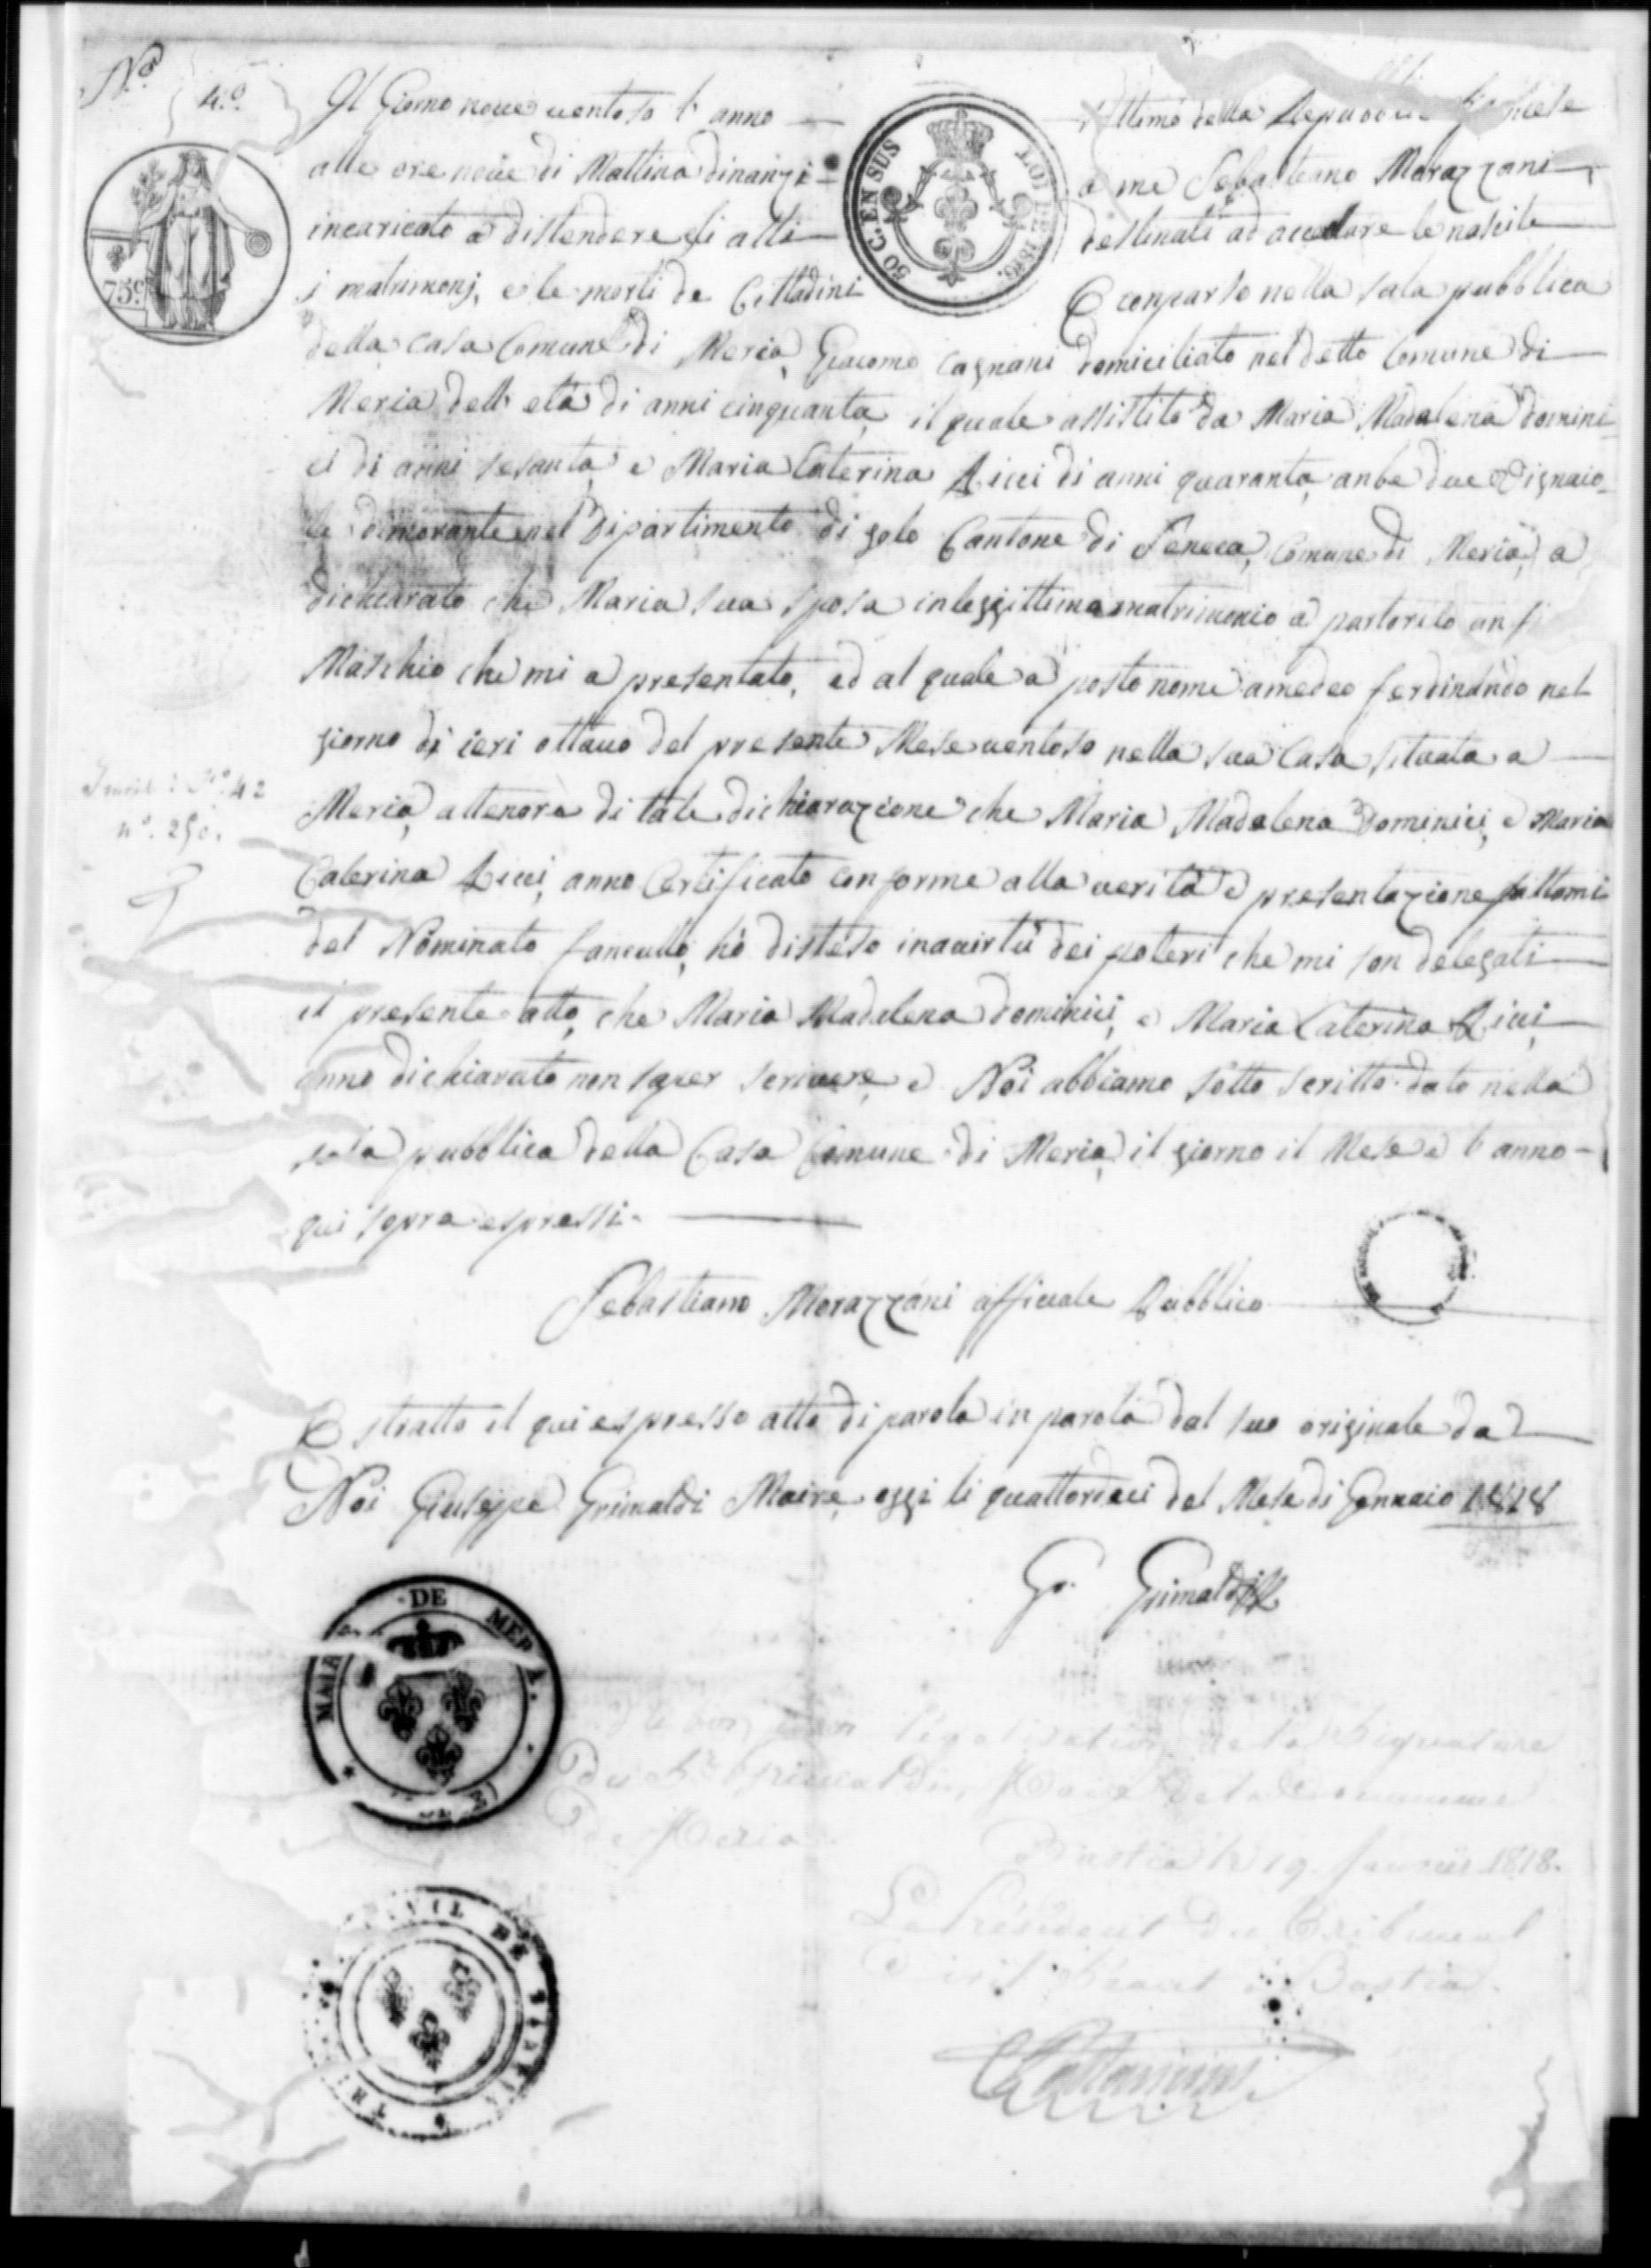 N.º
4.º
Il Giorno nove ventoso l'anno settimo della Repubblica francese
alle ore nove di Mattina dinanzi a me Sebastiano Morazzani
incaricato a distendere gli atti destinati ad accertare le nascite
i matrimonj, e le morti de Cittadini E comparso nella sala pubblica
della casa Comune di Meria, Giacomo Cagnani domiciliato nel detto Comune di
Meria dell'età di anni cinquanta, il quale assistito da Maria Madalena domini
ci di anni sesanta, e Maria Caterina Ricci di anni quaranta, anbe due Vignaio-
le dimorante nel Dipartimento di golo Cantone di Seneca, Comune di Meria, a
dichiarato che Maria sua sposa in leggittimo matrimonio a partorito un
Maschio che mi a presentato, ed al quale a posto nome amedeo ferdinando nel
giorno di ieri ottavo del presente Mese ventoso nella sua Casa situata a
Meria, attenore di tale dichiarazione che Maria Madalena Dominici, e Maria
Caterina Ricci, anno Certificato conforme alla verità e presentazione fattami
del Nominato fanciullo, hò disteso inavirtù dei poteri che mi son delegati
il presente atto, che Maria Madalena dominici, e Maria Caterina Ricci,
anno dichiarato non saper scrivere, e Noi abbiamo sotto scritto. dato nella
sala pubblica della Casa Comune di Meria, il giorno il Mese e l'anno
qui sopra espressi.
Sebastiano Morazzani officiale Pubblico
Estratto il qui espresso atto di parola in parola dal suo originale da
Noi Giuseppe Grimaldi Maire, oggi li quattordeci del Mese di Gennaio 1818
G. Grimaldi
légalisation de la signature
du Sr. Grimaldi, Maire de la Commune
de Meria
Bastia le 19 Janvier 1818.
Le Président du Tribunal
Civil séant à Bastia.
75 c.
50 C. EN SUS
LOI DE 1816.
Nº 42
nº. 250.
MAIRIE DE MERIA
CIVIL DE BASTIA